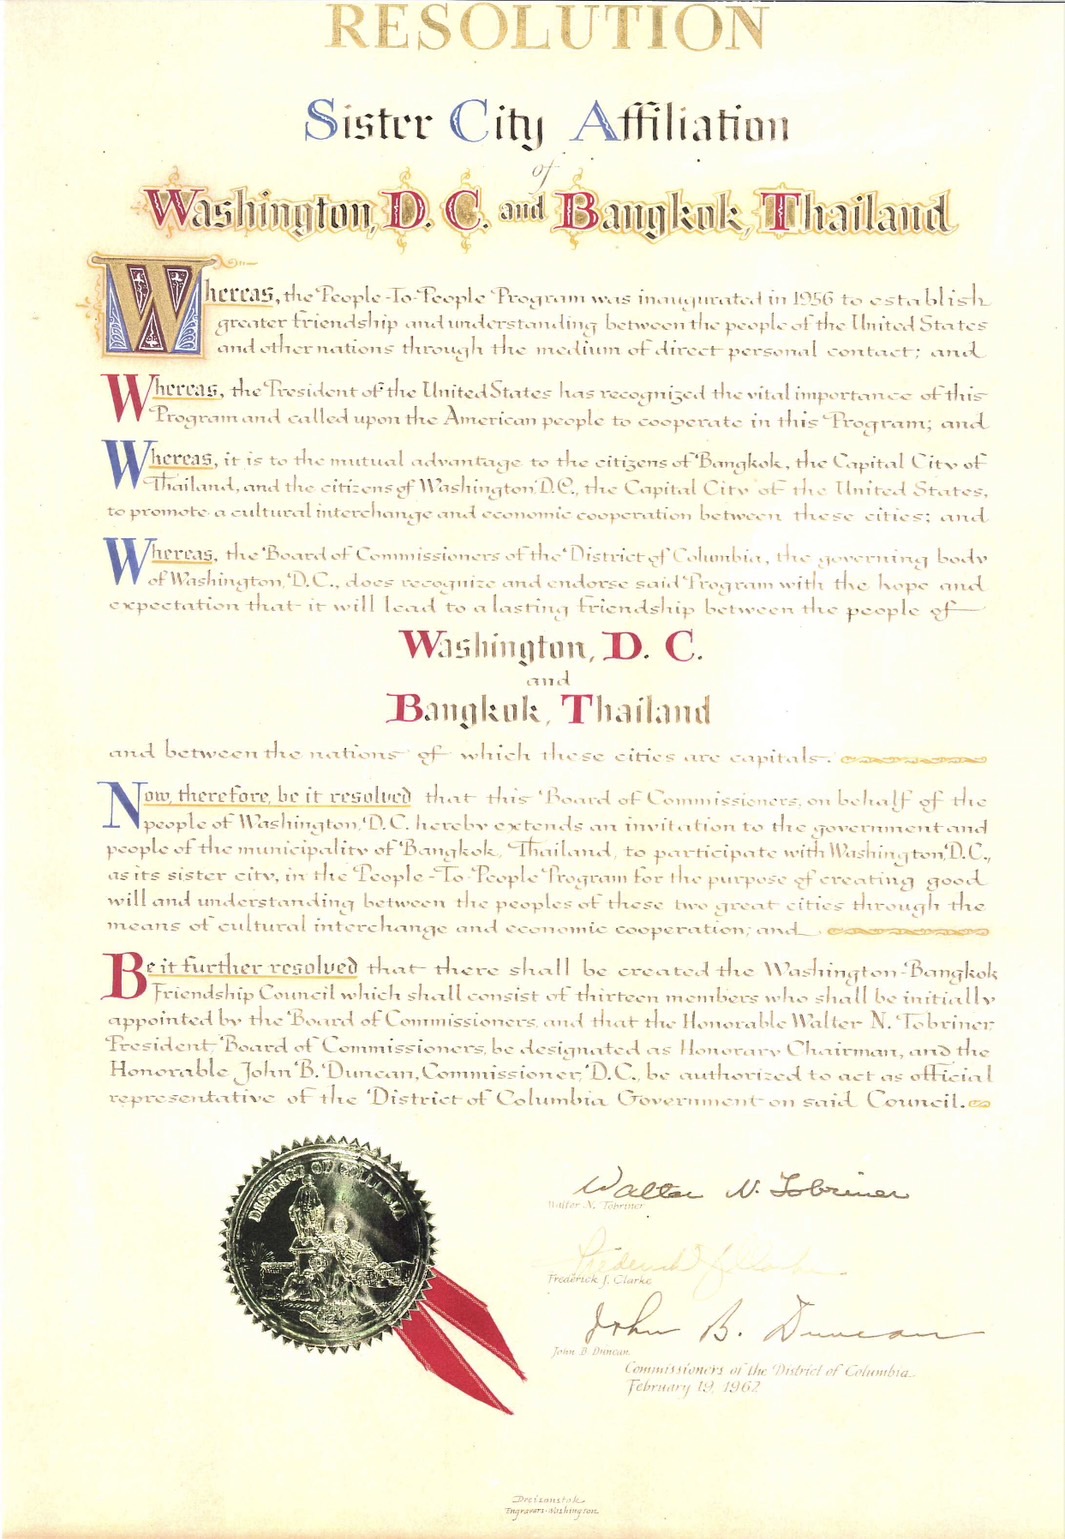 RESOLUTION
Sister City Affiliation
of
Washington, D. C. and Bangkok, Thailand
Whereas, the People-To-People Program was inaugurated in 1956 to establish
greater friendship and understanding between the people of the United States
and other nations through the medium of direct personal contact; and
Whereas, the President of the United States has recognized the vital importance of this
Program and called upon the American people to cooperate in this Program; and
Whereas, it is to the mutual advantage to the citizens of Bangkok, the Capital City of
Thailand, and the citizens of Washington, D.C., the Capital City of the United States,
to promote a cultural interchange and economic cooperation between these cities; and
Whereas, the Board of Commissioners of the District of Columbia, the governing body
of Washington, D.C., does recognize and endorse said Program with the hope and
expectation that it will lead to a lasting friendship between the people of
Washington, D. C.
and
Bangkok, Thailand
and between the nations of which these cities are capitals.
Now, therefore, be it resolved that this Board of Commissioners, on behalf of the
people of Washington, D.C. hereby extends an invitation to the government and
people of the municipality of Bangkok, Thailand, to participate with Washington, D.C.,
as its sister city, in the People-To-People Program for the purpose of creating good
will and understanding between the peoples of these two great cities through the
means of cultural interchange and economic cooperation; and
Be it further resolved that there shall be created the Washington-Bangkok
Friendship Council which shall consist of thirteen members who shall be initially
appointed by the Board of Commissioners, and that the Honorable Walter N. Tobriner,
President, Board of Commissioners, be designated as Honorary Chairman, and the
Honorable John B. Duncan, Commissioner, D.C., be authorized to act as official
representative of the District of Columbia Government on said Council.
DISTRICT OF COLUMBIA
Walter N. Tobriner
Walter N. Tobriner
Frederick J. Clarke
Frederick J. Clarke
John B. Duncan
John B. Duncan
Commissioners of the District of Columbia
February 19, 1962
Engravers-Washington